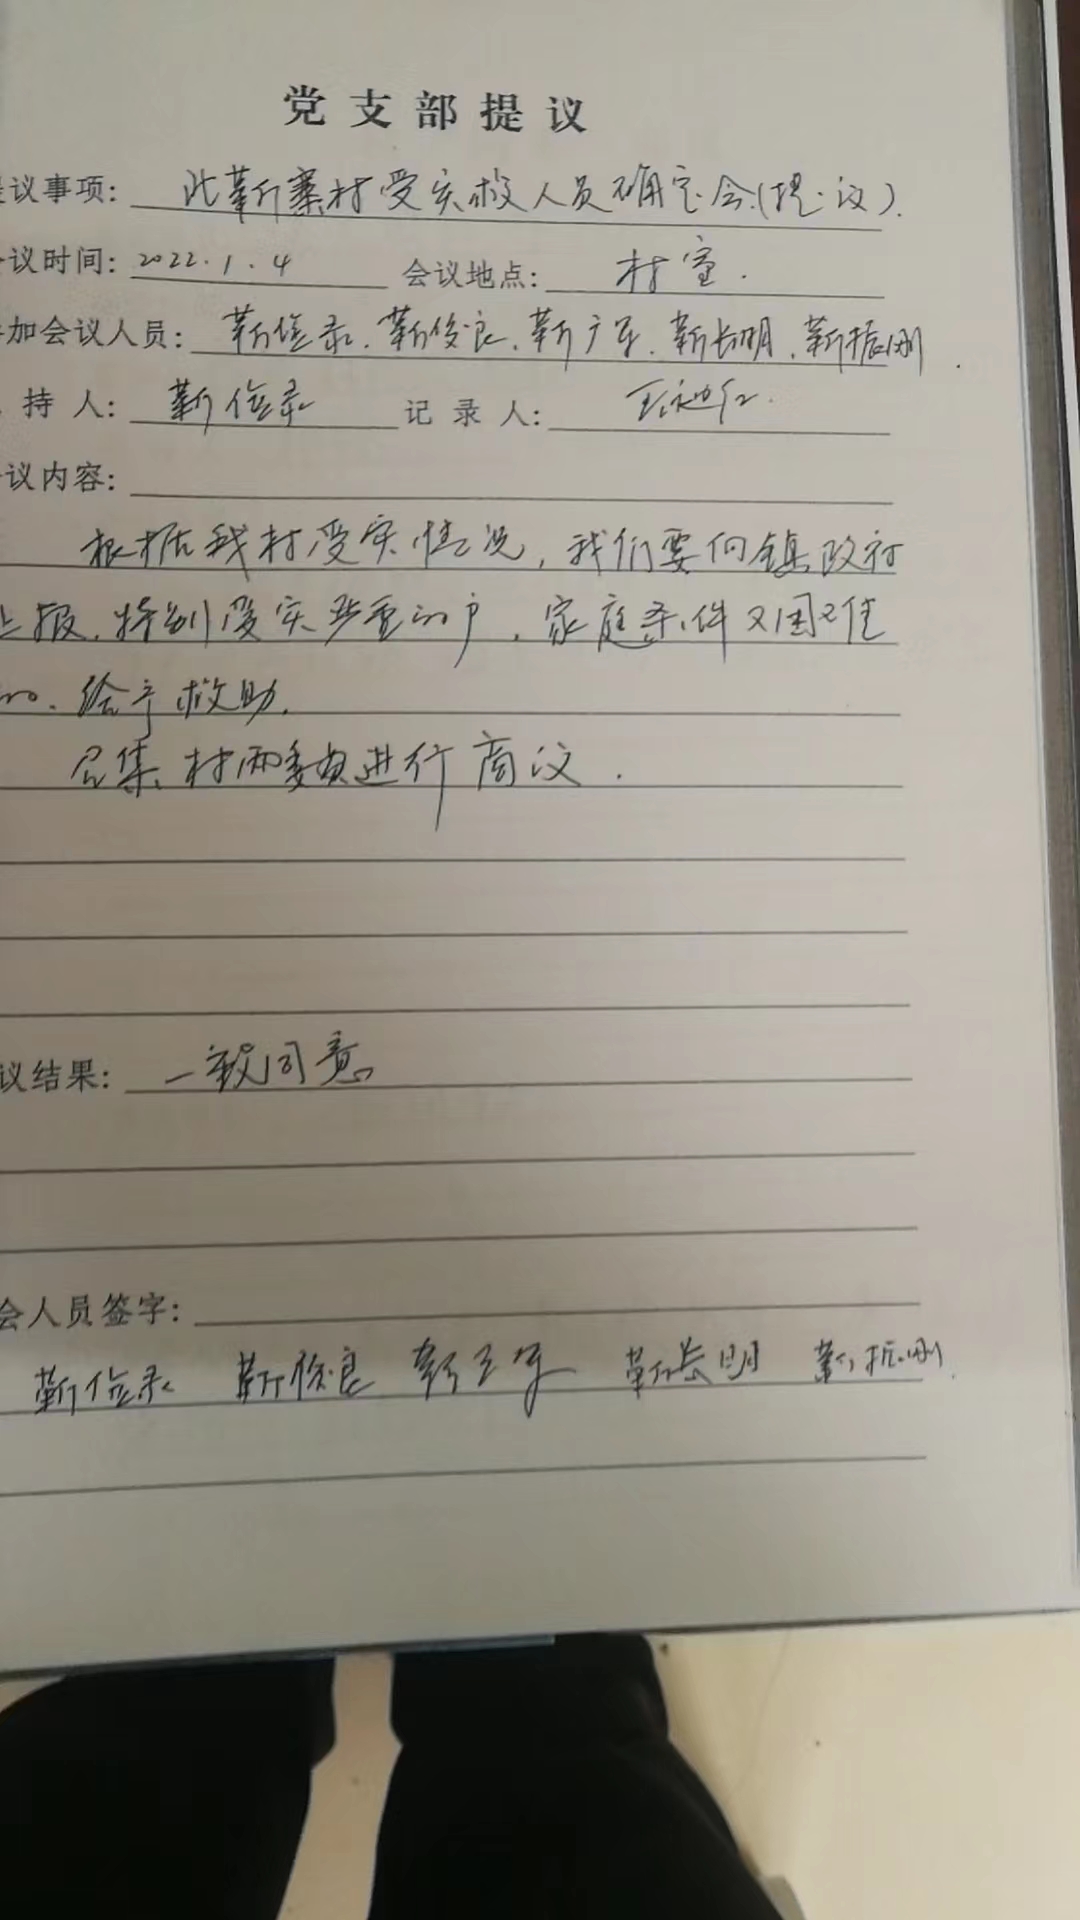 党支部提议
议事项: 北靳寨村受灾救人员确定会(提议).
议时间: 2022.1.4 会议地点: 村室.
加会议人员: 靳俊良. 靳长明. 靳振刚.
持人: 靳 记录人:
议内容:
根据我村受灾情况, 我们要向镇政府
上报. 特别受灾严重的户, 家庭条件又困难
的. 给予救助.
召集村两委员进行商议.
议结果: 一致同意
会人员签字:
靳 靳俊良 靳长明 靳振刚.